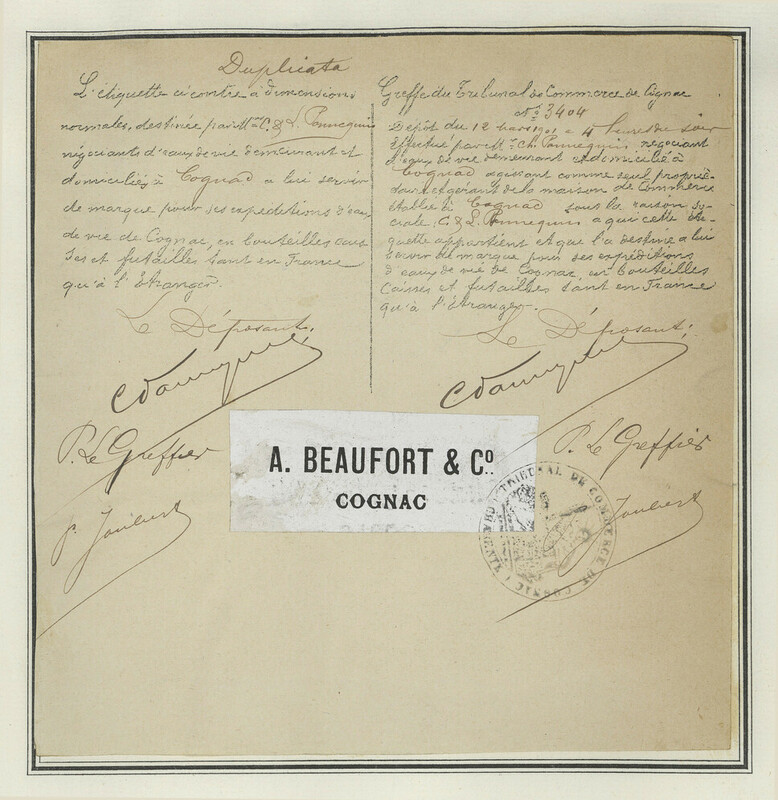 Duplicata
L'étiquette ci contre à dimensions
normales, destinée par M. C. & L. Pannequin
négociants d'eaux de vie demeurant et
domiciliés à Cognac a lui servir
de marque pour ses expéditions d'eaux
de vie de Cognac, en bouteilles cais
ses et futailles tant en France
qu'à l'étranger.
Le Déposant,
P. Le Greffier
P. Joubert
Greffe du Tribunal de Commerce de Cognac
N° 3404
Dépôt du 12 mars 1901 à 4 heures du soir
effectué par M. Ch. Pannequin négociant
d'eaux de vie demeurant et domicilié à
Cognac agissant comme seul proprié-
taire et gérant de la maison de Commerce
établie à Cognac sous la raison so-
ciale, C. & L. Pannequin a qui cette éti-
quette appartient et que l'a destiné a lui
servir de marque pour ses expéditions
d'eaux de vie de Cognac, en bouteilles
Caisses et futailles tant en France
qu'à l'étranger.
Le Déposant;
P. Le Greffier
Joubert
A. BEAUFORT & Cº.
COGNAC
TRIBUNAL DE COMMERCE DE COGNAC